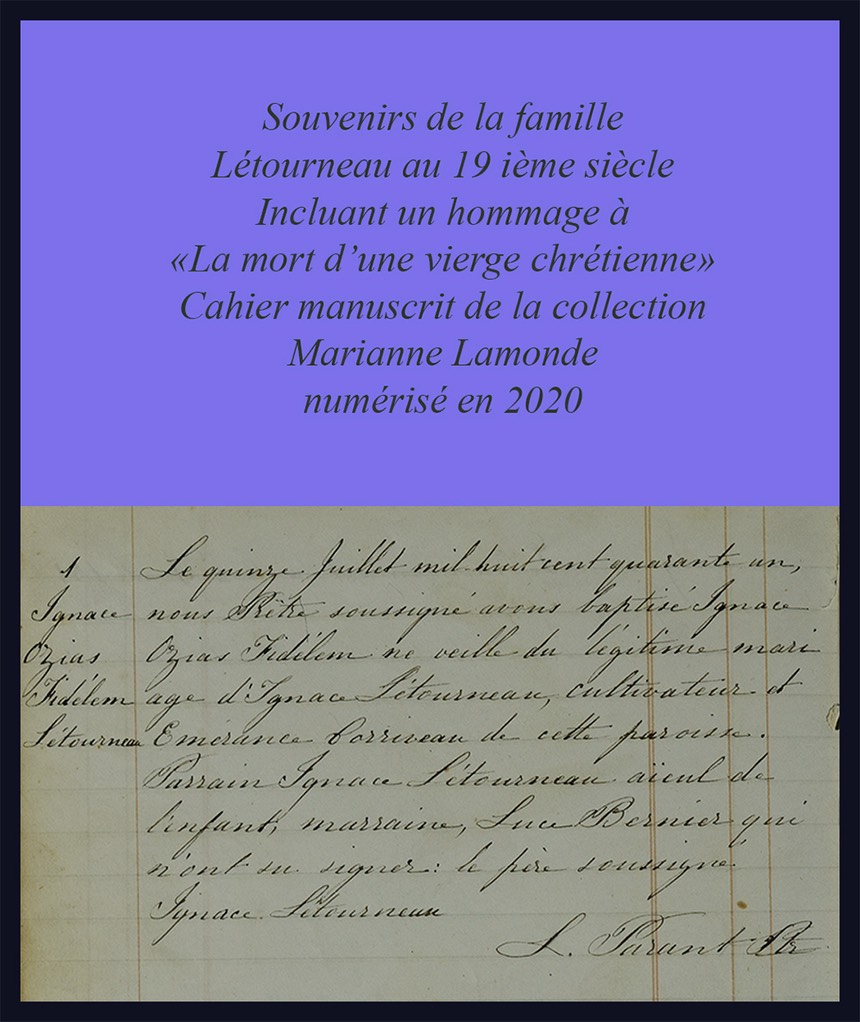 Souvenirs de la famille
Létourneau au 19 ième siècle
Incluant un hommage à
«La mort d’une vierge chrétienne»
Cahier manuscrit de la collection
Marianne Lamonde
numérisé en 2020
1
Ignace
Ozias
Fidélem
Létourneau
Le quinze Juillet mil huit cent quarante un,
nous Prêtre soussigné avons baptisé Ignace
Ozias Fidélem né veille du légitime mari
age d'Ignace Létourneau, cultivateur et
Emérance Corriveau de cette paroisse.
Parrain Ignace Létourneau aïeul de
l'enfant, marraine, Luce Bernier qui
n'ont su signer: le père soussigné
Ignace Létourneau
L. Parant Ptr